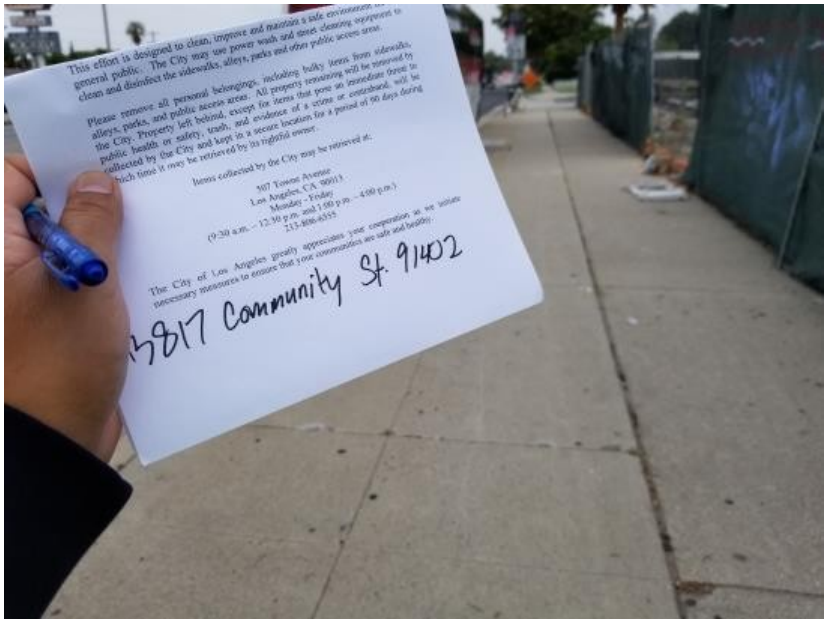 This effort is designed to clean, improve and maintain a safe environment
general public. The City may use power wash and street cleaning equipment to
clean and disinfect the sidewalks, alleys, parks and other public access areas.
Please remove all personal belongings, including bulky items from sidewalks,
alleys, parks, and public access areas. All property remaining will be removed by
the City. Property left behind, except for items that pose an immediate threat to
public health or safety, trash, and evidence of a crime or contraband, will be
collected by the City and kept in a secure location for a period of 90 days during
which time it may be retrieved by its rightful owner.
Items collected by the City may be retrieved at:
507 Towne Avenue
Los Angeles, CA 90013
Monday - Friday
(9:30 a.m. – 12:30 p.m. and 1:00 p.m. – 4:00 p.m.)
213-806-6355
The City of Los Angeles greatly appreciates your cooperation as we initiate
necessary measures to ensure that your communities are safe and healthy.
13817 Community St. 91402